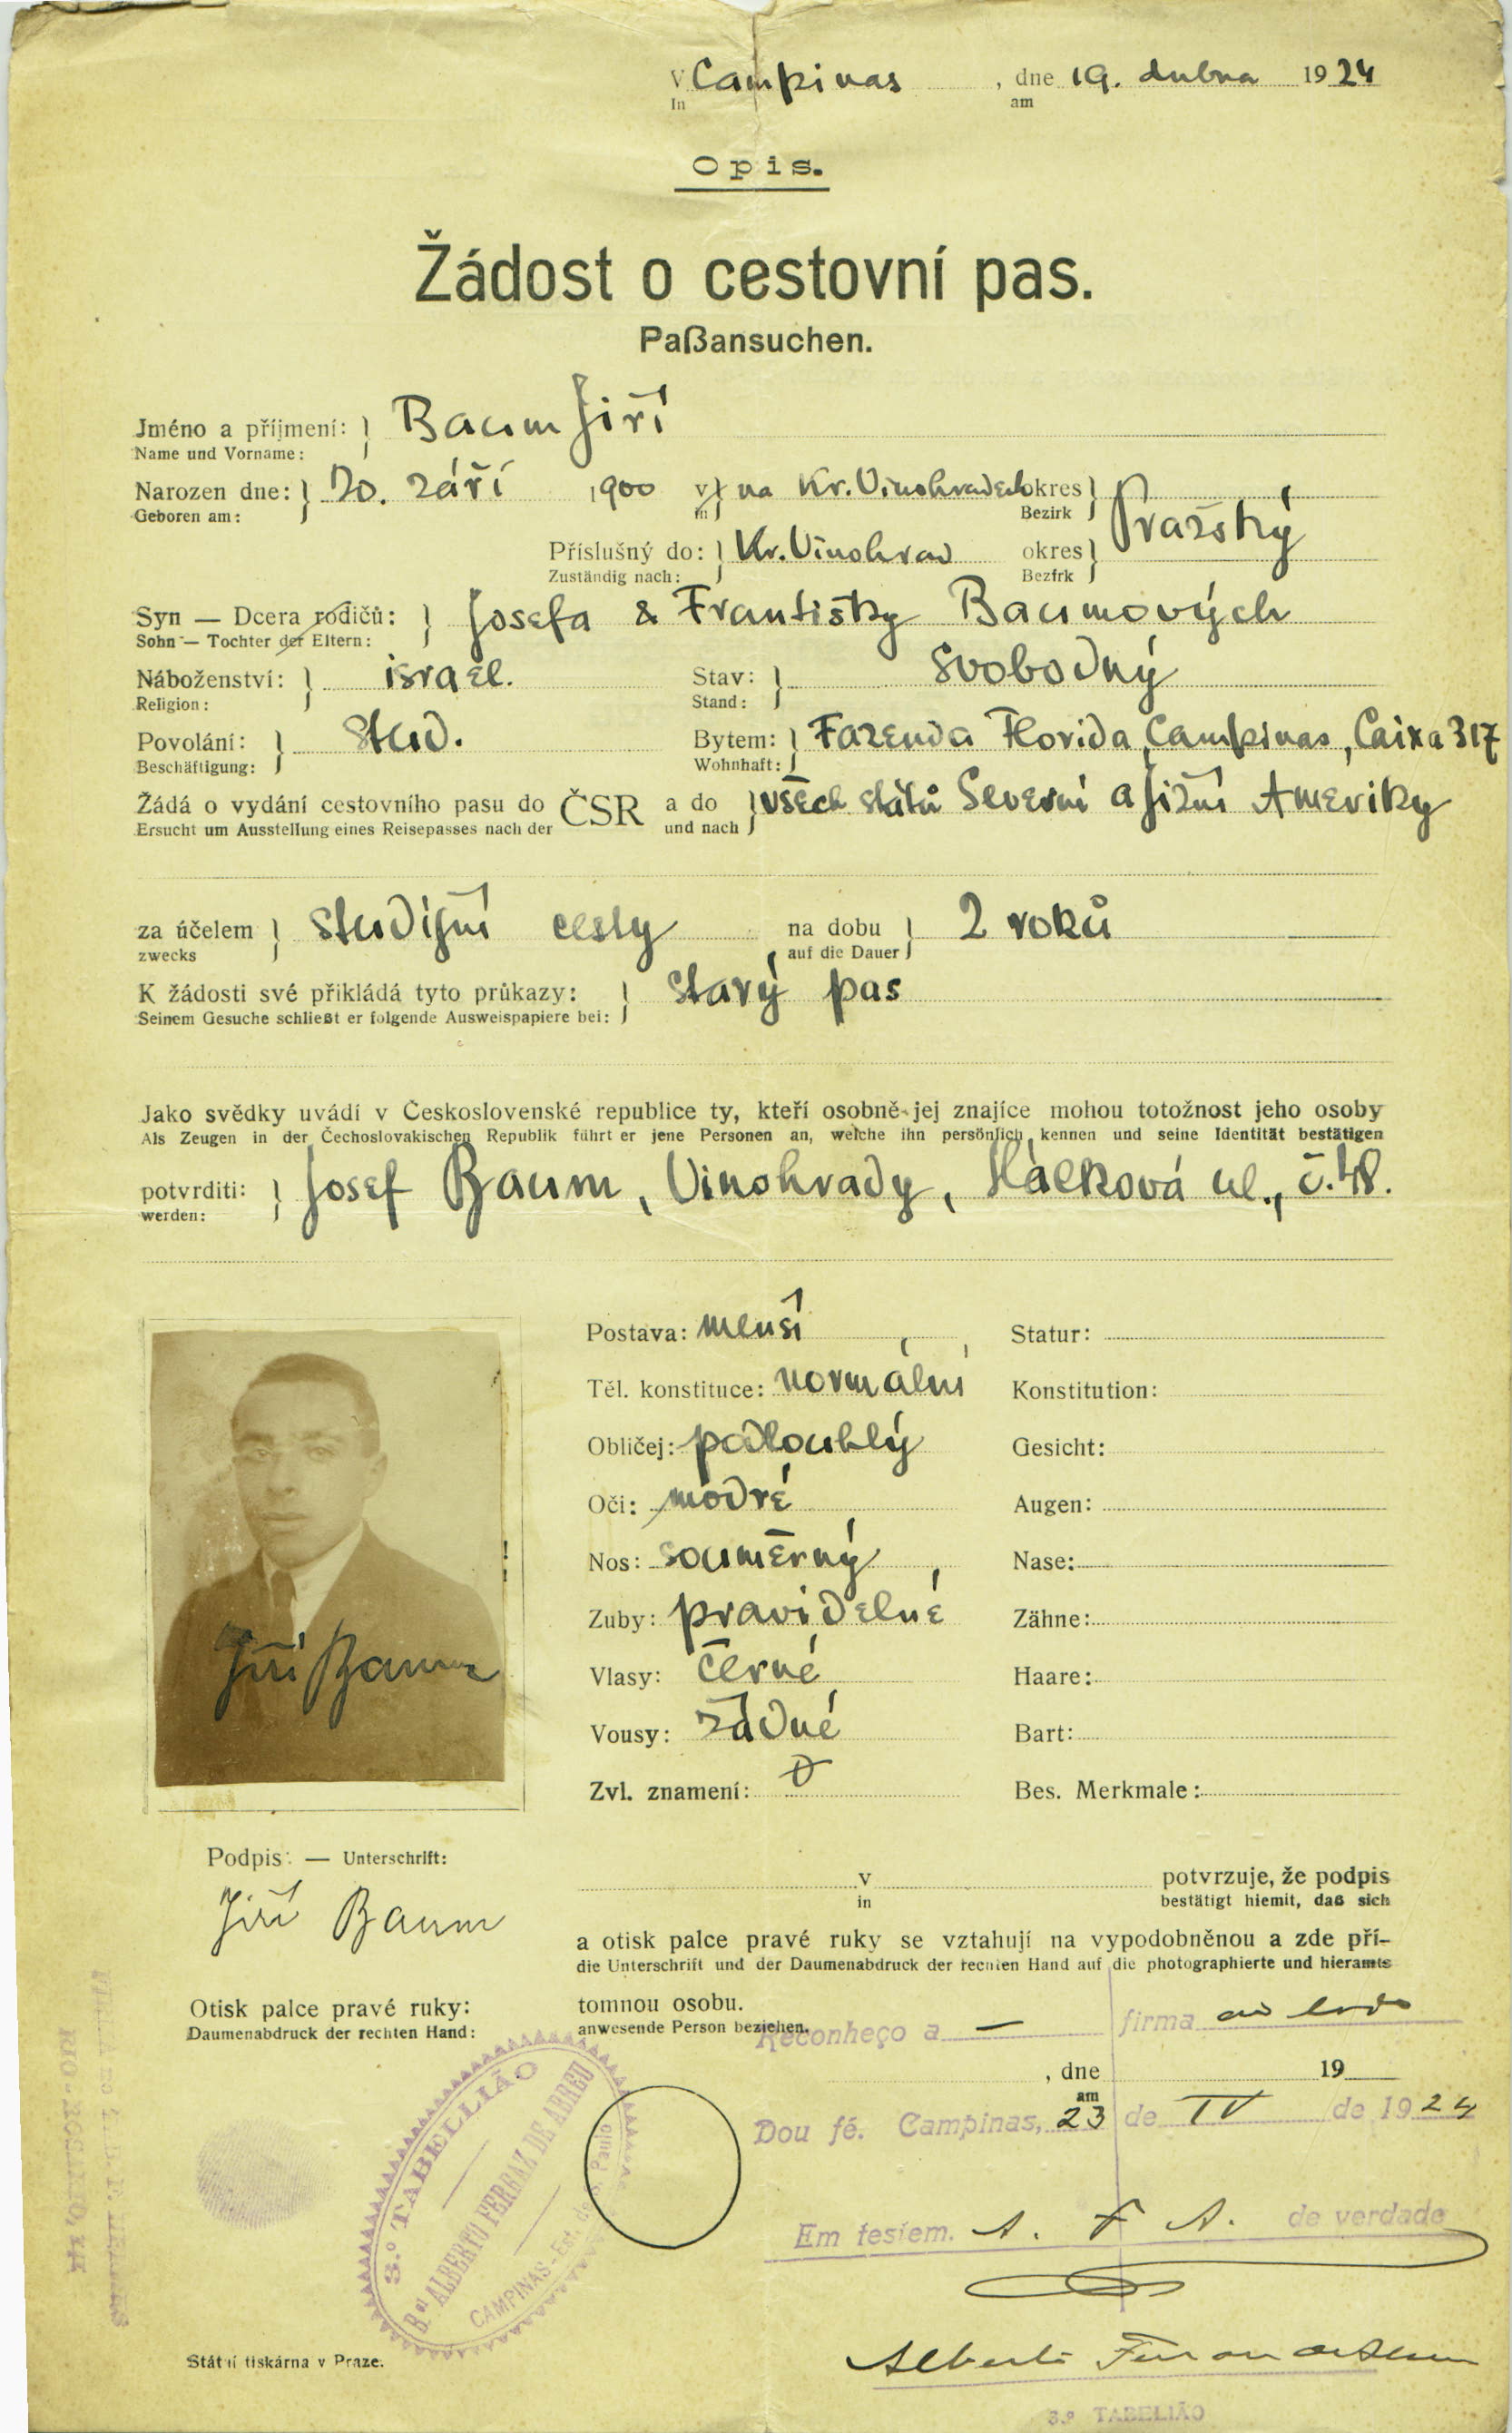 V Campinas, dne 19. dubna 1924
In am
Opis.
Žádost o cestovní pas.
Paßansuchen.
Jméno a příjmení: } Baum Jiří
Name und Vorname:
Narozen dne: } 20. září 1900 v } na Kr. Vinohradech okres } Pražský
Geboren am: in Bezirk
Příslušný do: } Kr. Vinohrad okres }
Zuständig nach: Bezirk
Syn — Dcera rodičů: } Josefa & Františky Baumových
Sohn — Tochter der Eltern:
Náboženství: } israel. Stav: } svobodný
Religion: Stand:
Povolání: } stud. Bytem: } Fazenda Florida, Campinas, Caixa 317
Beschäftigung: Wohnhaft:
Žádá o vydání cestovního pasu do ČSR a do } všech států Severní a Jižní Ameriky
Ersucht um Ausstellung eines Reisepasses nach der und nach
za účelem } studijní cesty na dobu } 2 roků
zwecks auf die Dauer
K žádosti své přikládá tyto průkazy: } starý pas
Seinem Gesuche schließt er folgende Ausweispapiere bei:
Jako svědky uvádí v Československé republice ty, kteří osobně jej znajíce mohou totožnost jeho osoby
Als Zeugen in der Čechoslovakischen Republik führt er jene Personen an, welche ihn persönlich kennen und seine Identität bestätigen
potvrditi: } Josef Baum, Vinohrady, Hálkova ul., č. 48.
werden:
Postava: menší Statur:
Těl. konstituce: normální Konstitution:
Obličej: podlouhlý Gesicht:
Oči: modré Augen:
Nos: souměrný Nase:
Zuby: pravidelné Zähne:
Vlasy: černé Haare:
Vousy: žádné Bart:
Zvl. znamení: Bes. Merkmale:
Jiří Baum
Podpis: — Unterschrift:
Jiří Baum
v potvrzuje, že podpis
in bestätigt hiemit, daß sich
a otisk palce pravé ruky se vztahují na vypodobněnou a zde pří-
die Unterschrift und der Daumenabdruck der rechten Hand auf die photographierte und hieramts
tomnou osobu.
anwesende Person beziehen.
Otisk palce pravé ruky:
Daumenabdruck der rechten Hand:
Reconheço a — firma
, dne 19
am
Dou fé. Campinas, 23 de IV de 1924
Em testem. A. F. A. de verdade
3.º TABELLIÃO
Bel ALBERTO FERRAZ DE ABREU
CAMPINAS - Est. de S. Paulo
Státní tiskárna v Praze.
3.º TABELIÃO